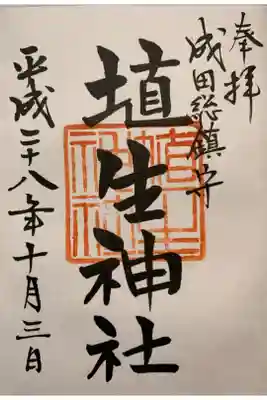 奉拝
成田総鎮守
埴生神社
平成二十八年十月三日